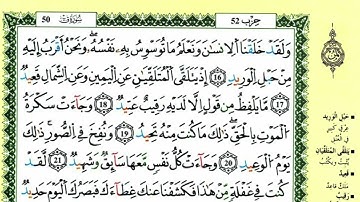 50 سورة ق حزب 52
وَلَقَدْ خَلَقْنَا اَ۬لِانسَٰنَ وَنَعْلَمُ مَا تُوَسْوِسُ بِهِۦ نَفْسُهُۥۖ وَنَحْنُ أَقْرَبُ إِلَيْهِ
مِنْ حَبْلِ اِ۬لْوَرِيدِ 16 إِذْ يَتَلَقَّى اَ۬لْمُتَلَقِّيَٰنِ عَنِ اِ۬لْيَمِينِ وَعَنِ اِ۬لشِّمَالِ قَعِيدٌ
17 مَّا يَلْفِظُ مِن قَوْلٍ اِلَّا لَدَيْهِ رَقِيبٌ عَتِيدٌ 18 وَجَآءَتْ سَكْرَةُ
اُ۬لْمَوْتِ بِالْحَقِّۖ ذَٰلِكَ مَا كُنتَ مِنْهُ تَحِيدُ 19 وَنُفِخَ فِي اِ۬لصُّورِۖ ذَٰلِكَ
يَوْمُ اُ۬لْوَعِيدِ 20 وَجَآءَتْ كُلُّ نَفْسٍ مَّعَهَا سَآئِقٌ وَشَهِيدٌ 21 لَّقَدْ
كُنتَ فِي غَفْلَةٍ مِّنْ هَٰذَا فَكَشَفْنَا عَنكَ غِطَآءَكَ فَبَصَرُكَ اَ۬لْيَوْمَ حَدِيدٌ
حَبْلِ الوَرِيدِ
عِرْقٍ كبيرٍ
في العُنُق
يَتَلَقَّى المُتَلَقِّيَانِ
يُثْبِتُ ويَكْتُبُ
قَعِيدٌ
مَلَكٌ قَاعِدٌ
رَقِيبٌ